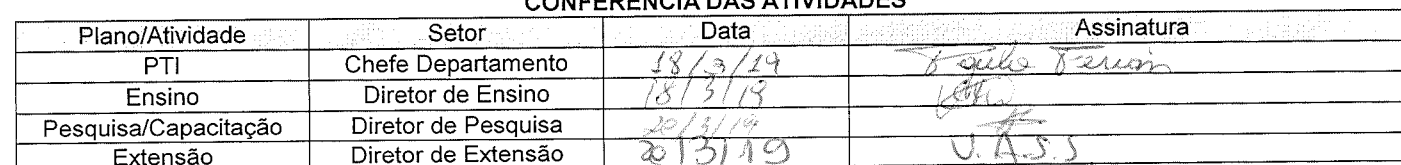 CONFERÊNCIA DAS ATIVIDADES
Plano/Atividade Setor Data Assinatura
PTI Chefe Departamento 18/3/19
Ensino Diretor de Ensino 18/3/19
Pesquisa/Capacitação Diretor de Pesquisa 20/3/19
Extensão Diretor de Extensão 20/3/19 U.A.S.S